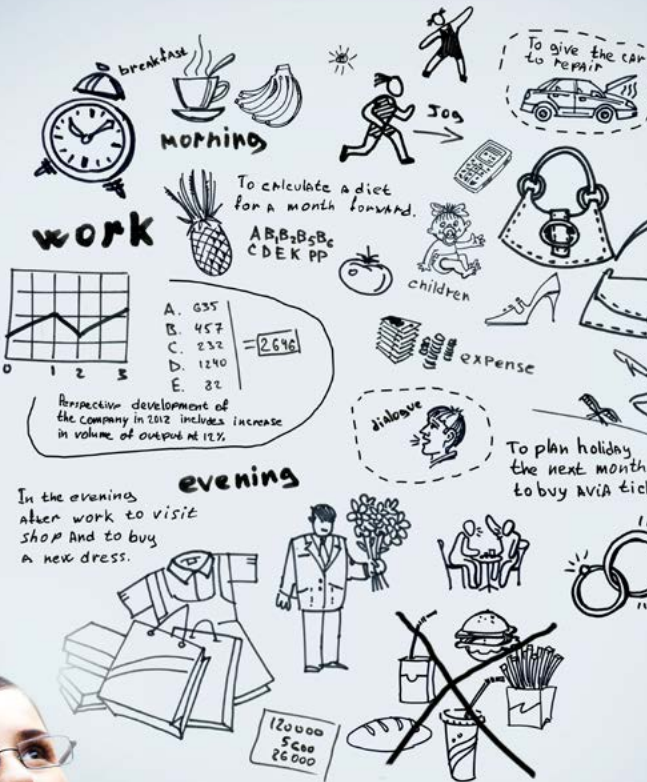 breakfast
morning
Jog
To give the car
to repair
To calculate a diet
for a month forward.
A B₁B₂B₅B₆
C D E K PP
children
work
0 1 2 3
A. 635
B. 457
C. 232
D. 1240
E. 82
= 2646
Perspective development of
the company in 2012 includes increase
in volume of output at 12%
expense
dialogue
To plan holiday
the next month
to buy AviA tic
evening
In the evening
After work to visit
shop And to buy
A new dress.
120000
5600
26000